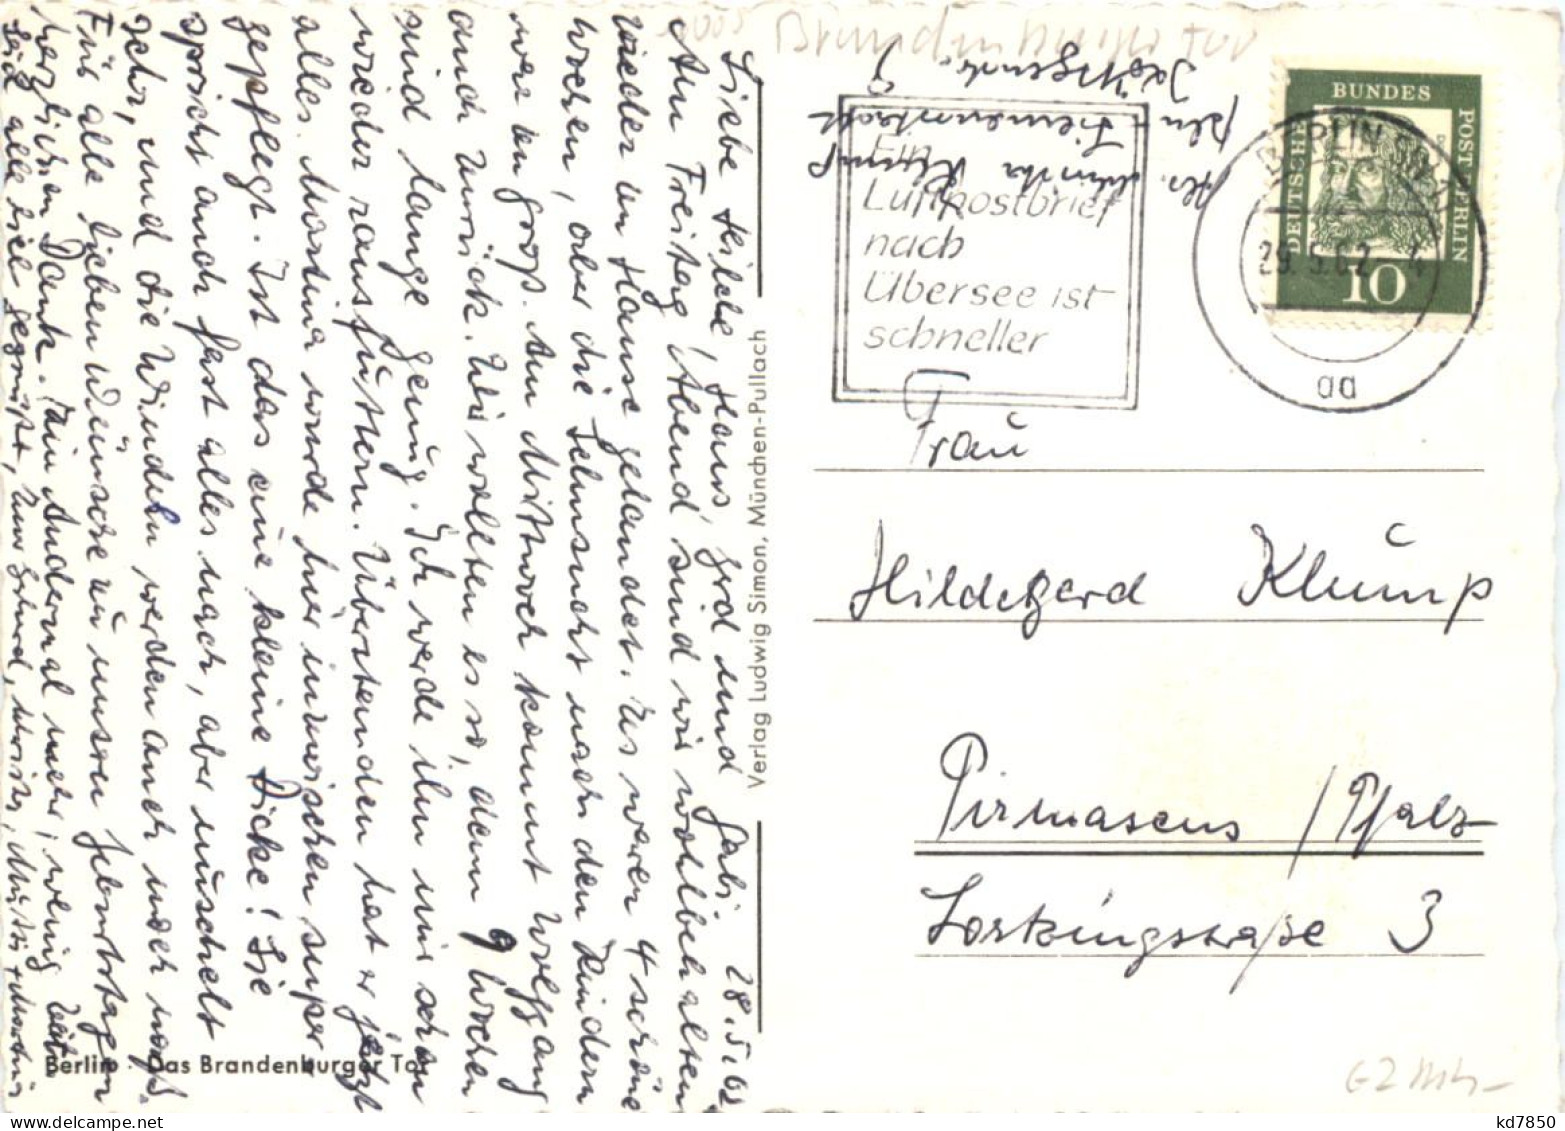 Liebe Hilde, Hans, Gerd und Gabi. 28.5.62
Am Freitag Abend sind wir wohlbehalten
wieder zu Hause gelandet. Es waren 4 schöne
Wochen, aber die Sehnsucht nach den Kindern
war zu groß. Am Mittwoch kommt Wolfgang
auch zurück. Wir wollten es so, denn 9 Wochen
sind lange genug. Ich werde ihn mir schon
wieder rausfüttern. Überstanden hat er jetzt
alles. Martina wurde hier inzwischen super
gepflegt. Ist das eine kleine Dicke! Sie
spricht auch fast alles nach, aber nuschelt
sehr, und die Windeln werden auch noch naß.
Für alle lieben Wünsche zu unseren Geburtstagen
herzlichen Dank. Ein Andermal mehr, wenig Zeit.
Seid alle viel gegrüßt, von
Verlag Ludwig Simon, München-Pullach
Berlin Das Brandenburger Tor
Brandenburger Tor
Abs. Klumpf
Bln-
Ein
Luftpostbrief
nach
Übersee ist
schneller
DEUTSCHE BUNDESPOST BERLIN
10
BERLIN SW
29.5.62
aa
Frau
Hildegard Klump
Pirmasens / Pfalz
Lortzingstraße 3
kd7850